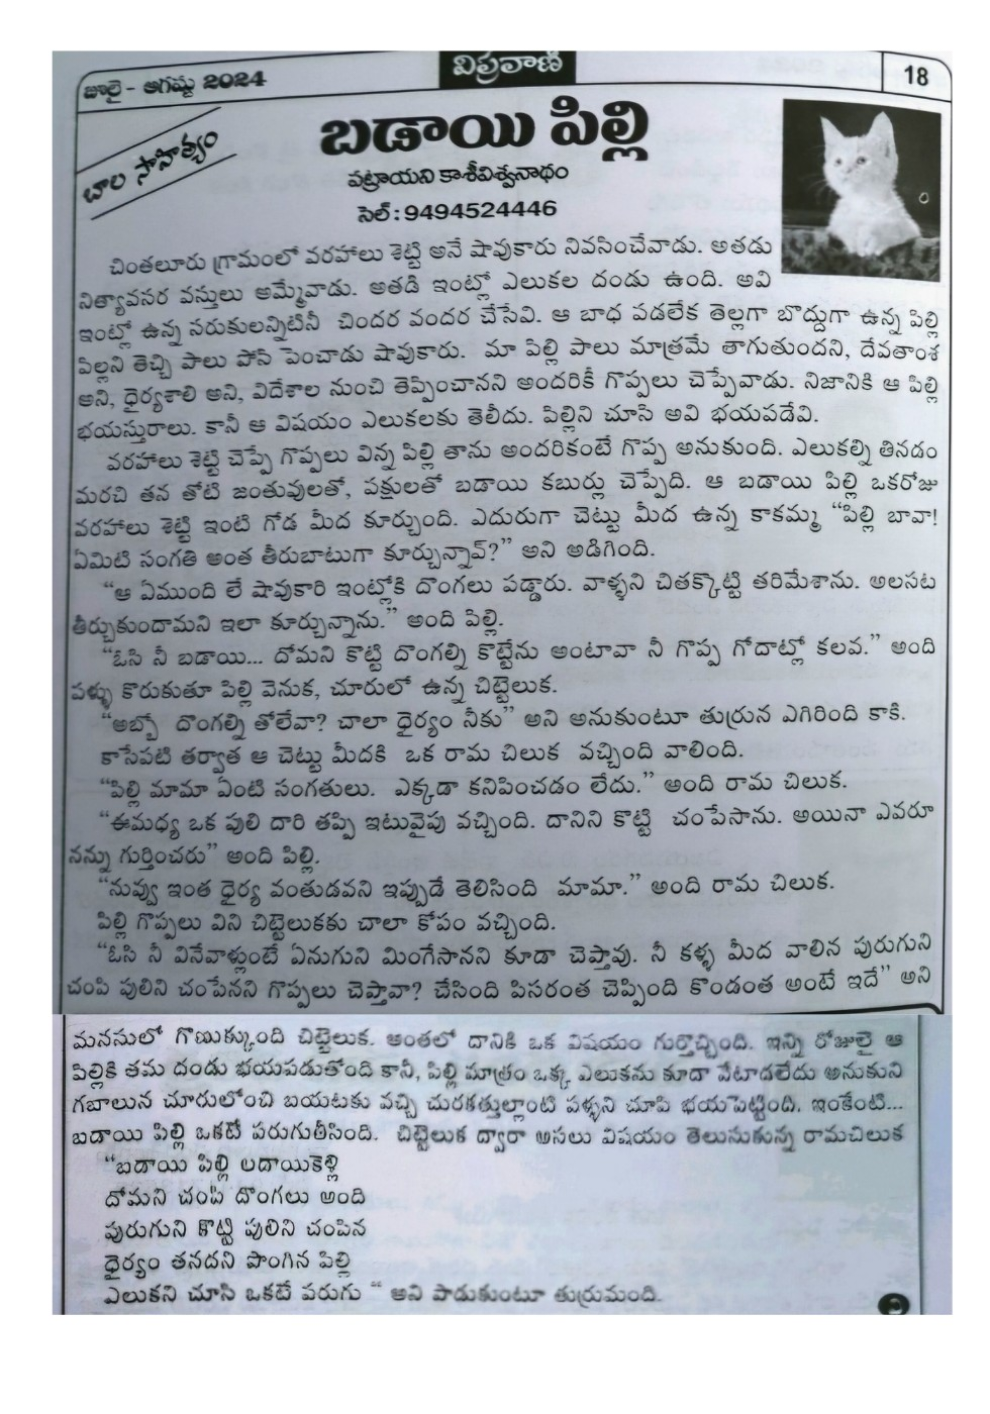 జూలై - ఆగష్టు 2024
విప్రవాణి
18
బాల సాహిత్యం
బడాయి పిల్లి
పట్రాయని కాశీవిశ్వనాథం
సెల్ : 9494524446
చింతలూరు గ్రామంలో వరహాలు శెట్టి అనే షావుకారు నివసించేవాడు. అతడు
నిత్యావసర వస్తులు అమ్మేవాడు. అతడి ఇంట్లో ఎలుకల దండు ఉంది. అవి
ఇంట్లో ఉన్న సరుకులన్నిటినీ చిందర వందర చేసేవి. ఆ బాధ పడలేక తెల్లగా బొద్దుగా ఉన్న పిల్లి
పిల్లని తెచ్చి పాలు పోసి పెంచాడు షావుకారు. మా పిల్లి పాలు మాత్రమే తాగుతుందని, దేవతాంశ
అని, ధైర్యశాలి అని, విదేశాల నుంచి తెప్పించానని అందరికీ గొప్పలు చెప్పేవాడు. నిజానికి ఆ పిల్లి
భయస్తురాలు. కానీ ఆ విషయం ఎలుకలకు తెలీదు. పిల్లిని చూసి అవి భయపడేవి.
వరహాలు శెట్టి చెప్పే గొప్పలు విన్న పిల్లి తాను అందరికంటే గొప్ప అనుకుంది. ఎలుకల్ని తినడం
మరచి తన తోటి జంతువులతో, పక్షులతో బడాయి కబుర్లు చెప్పేది. ఆ బడాయి పిల్లి ఒకరోజు
వరహాలు శెట్టి ఇంటి గోడ మీద కూర్చుంది. ఎదురుగా చెట్టు మీద ఉన్న కాకమ్మ “పిల్లి బావా!
ఏమిటి సంగతి అంత తీరుబాటుగా కూర్చున్నావ్?” అని అడిగింది.
“ఆ ఏముంది లే షావుకారి ఇంట్లోకి దొంగలు పడ్డారు. వాళ్ళని చితక్కొట్టి తరిమేశాను. అలసట
తీర్చుకుందామని ఇలా కూర్చున్నాను.” అంది పిల్లి.
“ఓసి నీ బడాయి... దోమని కొట్టి దొంగల్ని కొట్టేను అంటావా నీ గొప్ప గోదాట్లో కలవ.” అంది
పళ్ళు కొరుకుతూ పిల్లి వెనుక, చూరులో ఉన్న చిట్టెలుక.
“అబ్బో దొంగల్ని తోలేవా? చాలా ధైర్యం నీకు” అని అనుకుంటూ తుర్రున ఎగిరింది కాకి.
కాసేపటి తర్వాత ఆ చెట్టు మీదకి ఒక రామ చిలుక వచ్చింది వాలింది.
“పిల్లి మామా ఏంటి సంగతులు. ఎక్కడా కనిపించడం లేదు.” అంది రామ చిలుక.
“ఈమధ్య ఒక పులి దారి తప్పి ఇటువైపు వచ్చింది. దానిని కొట్టి చంపేసాను. అయినా ఎవరూ
నన్ను గుర్తించరు” అంది పిల్లి.
“నువ్వు ఇంత ధైర్య వంతుడవని ఇప్పుడే తెలిసింది మామా.” అంది రామ చిలుక.
పిల్లి గొప్పలు విని చిట్టెలుకకు చాలా కోపం వచ్చింది.
“ఓసి నీ వినేవాళ్లుంటే ఏనుగుని మింగేసానని కూడా చెప్తావు. నీ కళ్ళ మీద వాలిన పురుగుని
చంపి పులిని చంపేనని గొప్పలు చెప్తావా? చేసింది పిసరంత చెప్పింది కొండంత అంటే ఇదే” అని
మనసులో గొణుక్కుంది చిట్టెలుక. అంతలో దానికి ఒక విషయం గుర్తొచ్చింది. ఇన్ని రోజులై ఆ
పిల్లికి తమ దండు భయపడుతోంది కానీ, పిల్లి మాత్రం ఒక్క ఎలుకను కూడా వేటాడలేదు అనుకుని
గబాలున చూరులోంచి బయటకు వచ్చి చురకత్తుల్లాంటి పళ్ళని చూపి భయపెట్టింది. ఇంకేంటి...
బడాయి పిల్లి ఒకటే పరుగుతీసింది. చిట్టెలుక ద్వారా అసలు విషయం తెలుసుకున్న రామచిలుక
“బడాయి పిల్లి లడాయికెళ్లి
దోమని చంపి దొంగలు అంది
పురుగుని కొట్టి పులిని చంపిన
ధైర్యం తనదని పొంగిన పిల్లి
ఎలుకని చూసి ఒకటే పరుగు “ అని పాడుకుంటూ తుర్రుమంది.